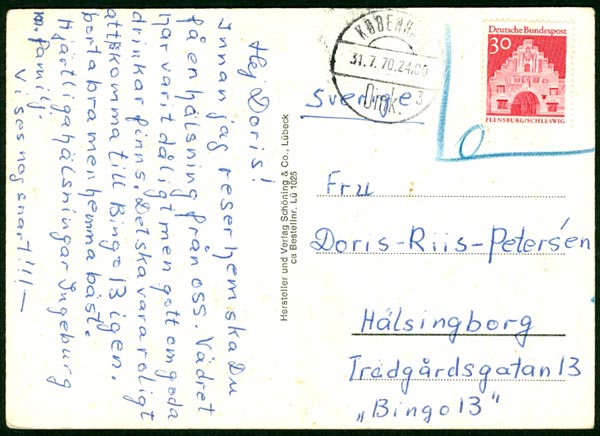 Hej Doris!
Innan jag reser hem ska Du
få en hälsning från oss. Vädret
har varit dåligt men gott om goda
drinkar finns. Det ska vara roligt
att komma till Bingo 13 igen.
borta bra men hemma bäst.
Hjärtliga hälsningar Ingeburg
m. familj.
Vi ses nog snart!!!!—
Hersteller und Verlag Schöning & Co., Lübeck
ca Bestellnr. Lü 1025
KØBENH
31.7.70.24.00
Omk. 3
Deutsche Bundespost
30
FLENSBURG/SCHLESWIG
Sverige
Fru
Doris-Riis-Petersén
Hälsingborg
Trädgårdsgatan 13
„Bingo 13"